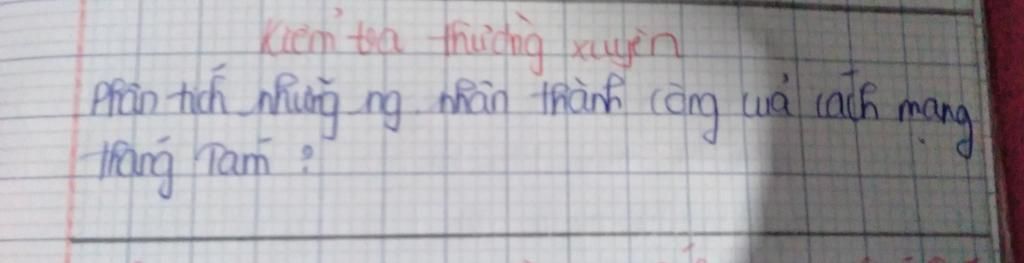 Kiểm tra thường xuyên
Phân tích những ng nhân thành công của cách mạng
tháng Tám ?